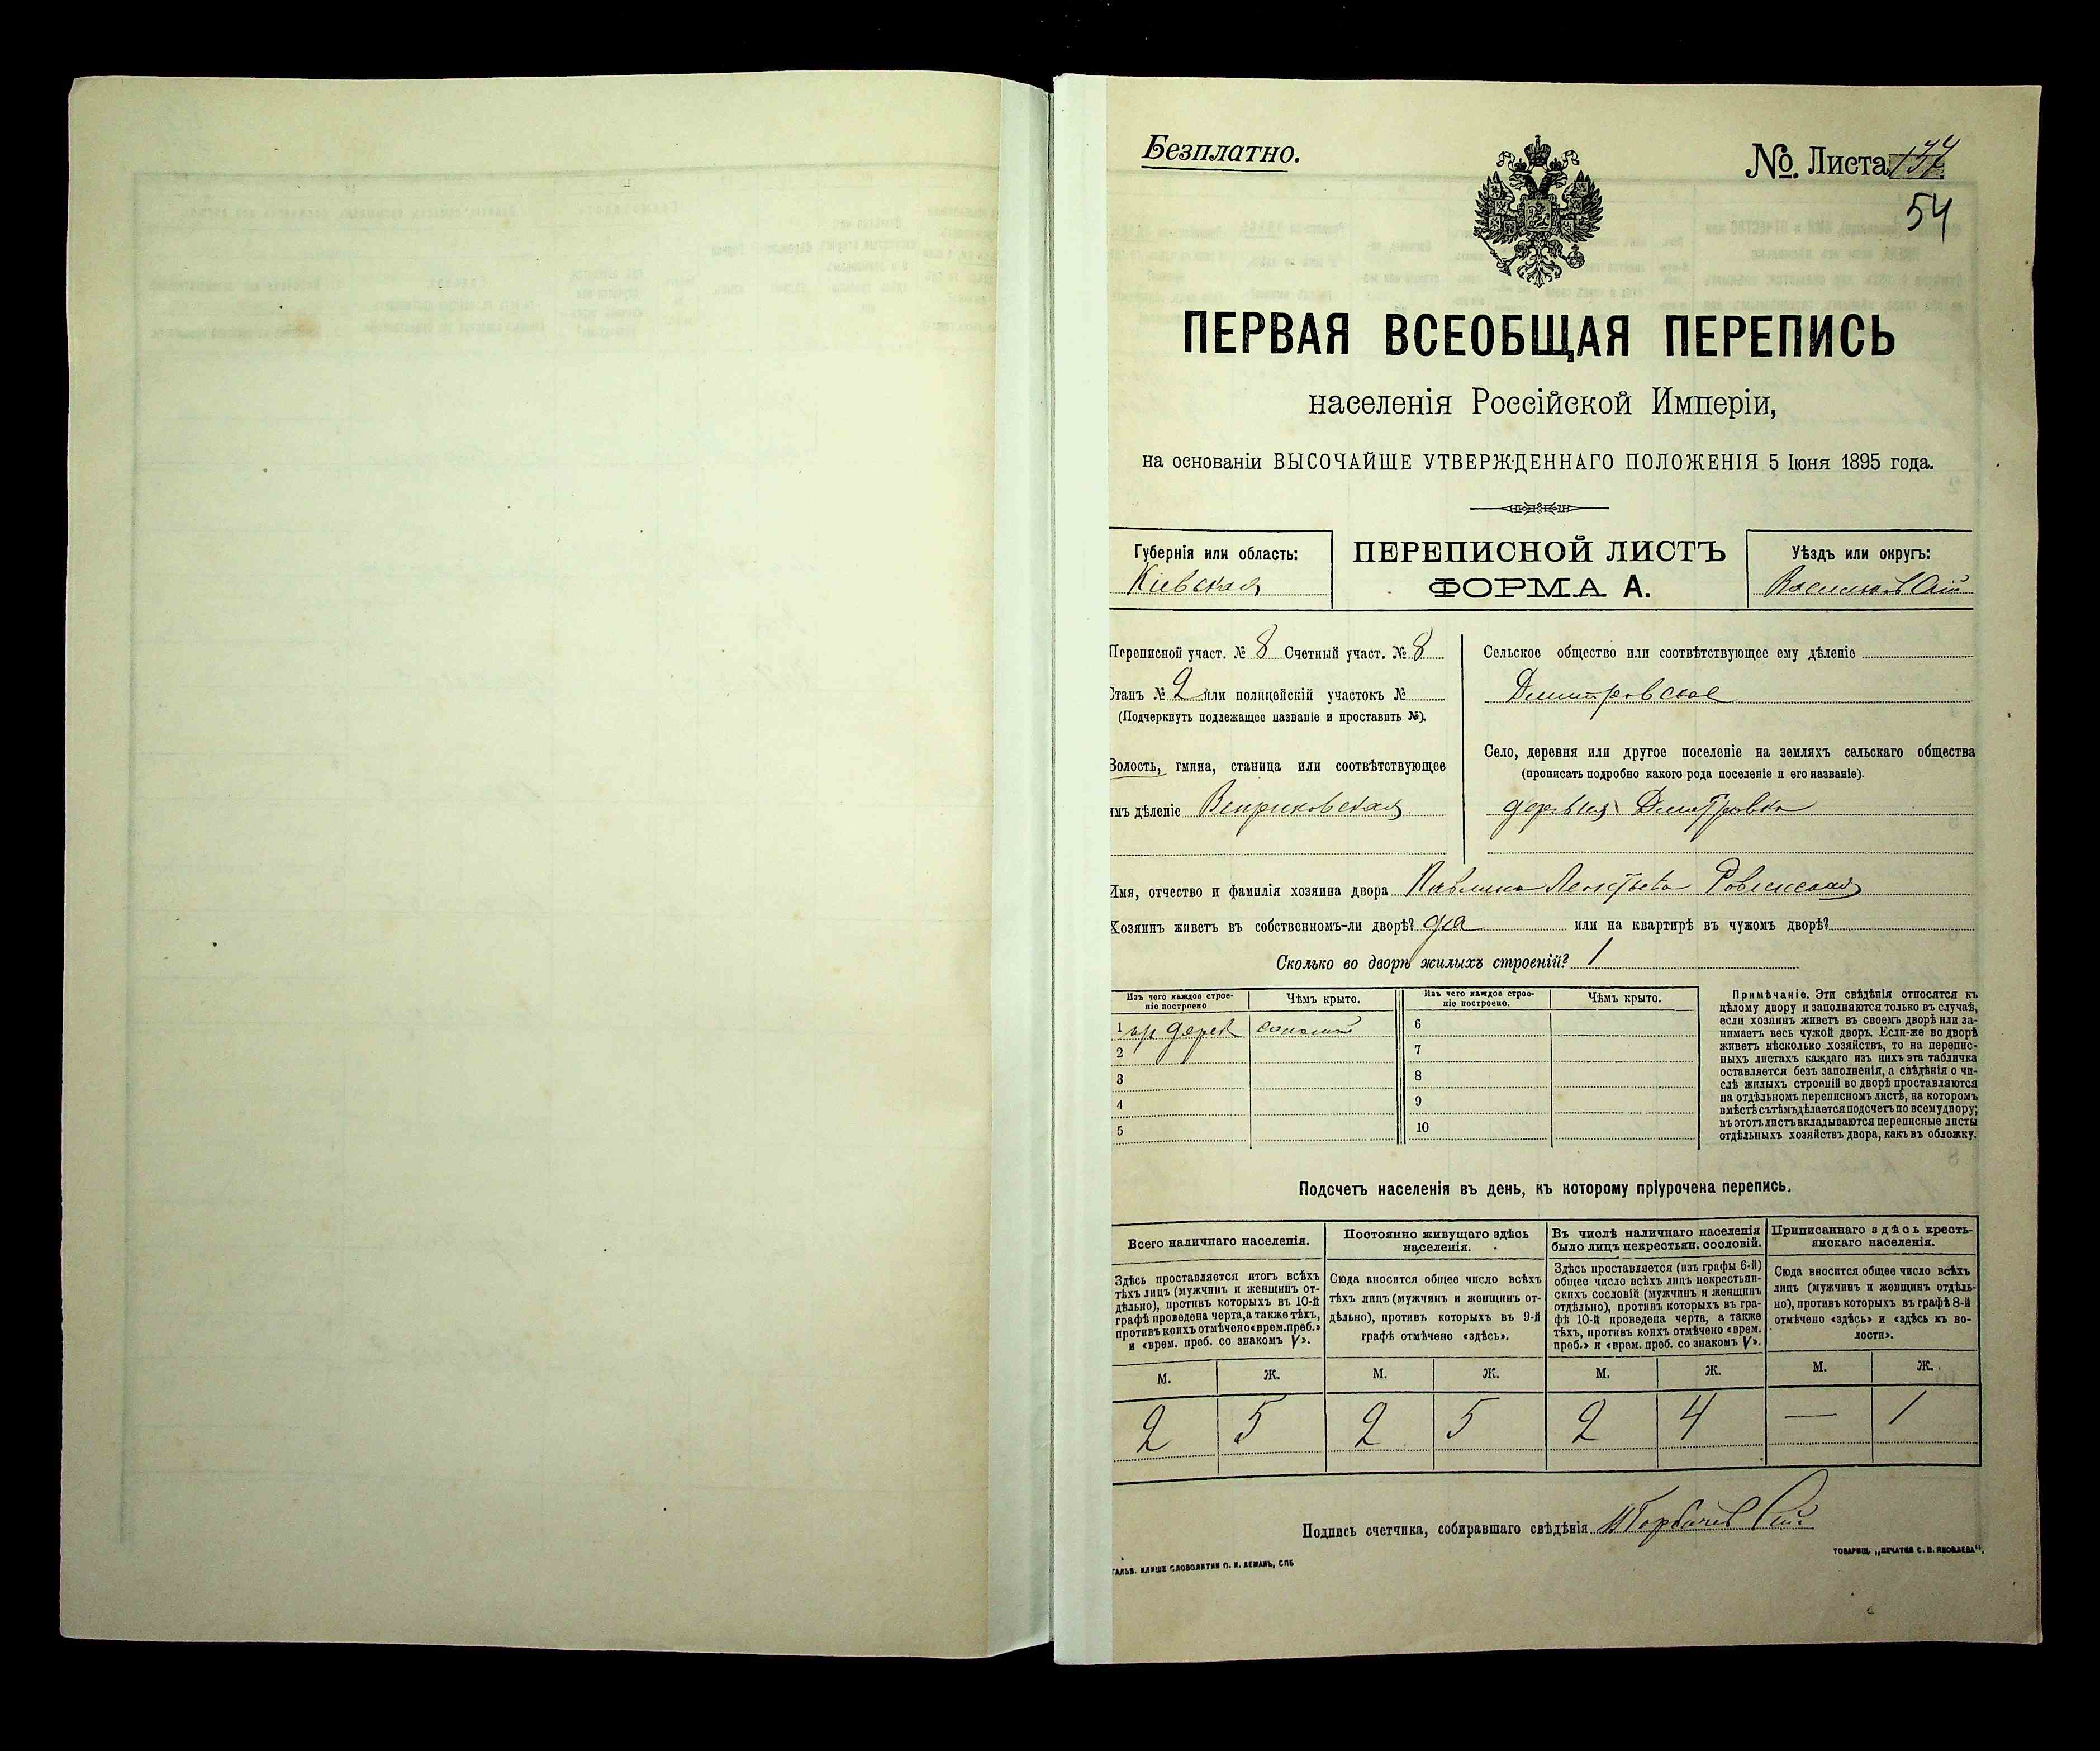 Безплатно.
№. Листа
54
ПЕРВАЯ ВСЕОБЩАЯ ПЕРЕПИСЬ
населенія Россійской Имперіи,
на основаніи ВЫСОЧАЙШЕ УТВЕРЖДЕННАГО ПОЛОЖЕНІЯ 5 Іюня 1895 года.
Губернія или область:
Кіевская
ПЕРЕПИСНОЙ ЛИСТЪ
ФОРМА А.
Уѣздъ или округъ:
Васильковскій
Переписной участ. № 8 Счетный участ. № 8
Станъ № 2 или полицейскій участокъ №
(Подчеркнуть подлежащее названіе и проставить №).
Волость, гмина, станица или соотвѣтствующее
имъ дѣленіе Веприковская
Сельское общество или соотвѣтствующее ему дѣленіе
Дмитровское
Село, деревня или другое поселеніе на земляхъ сельскаго общества
(прописать подробно какого рода поселеніе и его названіе).
деревня Дмитровка
Имя, отчество и фамилія хозяина двора Павлина Леонтьева Ровинская
Хозяинъ живетъ въ собственномъ-ли дворѣ? да или на квартирѣ въ чужомъ дворѣ?
Сколько во дворѣ жилыхъ строеній? 1
Изъ чего каждое строе-
ніе построено
Чѣмъ крыто.
Изъ чего каждое строе-
ніе построено.
Чѣмъ крыто.
1 дерев соломой
2
3
4
5
6
7
8
9
10
Примѣчаніе. Эти свѣдѣнія относятся къ
цѣлому двору и заполняются только въ случаѣ,
если хозяинъ живетъ въ своемъ дворѣ или за-
нимаетъ весь чужой дворъ. Если-же во дворѣ
живетъ нѣсколько хозяйствъ, то на перепис-
ныхъ листахъ каждаго изъ нихъ эта табличка
оставляется безъ заполненія, а свѣдѣнія о чи-
слѣ жилыхъ строеній во дворѣ проставляются
на отдѣльномъ переписномъ листѣ, на которомъ
вмѣстѣ съ тѣмъ дѣлается подсчетъ по всему двору;
въ этотъ листъ вкладываются переписные листы
отдѣльныхъ хозяйствъ двора, какъ въ обложку.
Подсчетъ населенія въ день, къ которому пріурочена перепись.
Всего наличнаго населенія.
Постоянно живущаго здѣсь
населенія.
Въ числѣ наличнаго населенія
было лицъ некрестьян. сословій.
Приписаннаго здѣсь кресть-
янскаго населенія.
Здѣсь проставляется итогъ всѣхъ
тѣхъ лицъ (мужчинъ и женщинъ от-
дѣльно), противъ которыхъ въ 10-й
графѣ проведена черта, а также тѣхъ,
противъ коихъ отмѣчено «врем. преб.»
и «врем. преб. со знакомъ V».
Сюда вносится общее число всѣхъ
тѣхъ лицъ (мужчинъ и женщинъ от-
дѣльно), противъ которыхъ въ 9-й
графѣ отмѣчено «здѣсь».
Здѣсь проставляется (изъ графы 6-й)
общее число всѣхъ лицъ некрестьян-
скихъ сословій (мужчинъ и женщинъ
отдѣльно), противъ которыхъ въ гра-
фѣ 10-й проведена черта, а также
тѣхъ, противъ коихъ отмѣчено «врем.
преб.» и «врем. преб. со знакомъ V».
Сюда вносится общее число всѣхъ
лицъ (мужчинъ и женщинъ отдѣль-
но), противъ которыхъ въ графѣ 8-й
отмѣчено «здѣсь» и «здѣсь къ во-
лости».
М. Ж. М. Ж. М. Ж. М. Ж.
2 5 2 5 2 4 — 1
Подпись счетчика, собиравшаго свѣдѣнія
ГАЛЬВ. КЛИШЕ СЛОВОЛИТНИ О. И. ЛЕМАНЪ, СПБ
ТОВАРИЩ. „ПЕЧАТНЯ С. П. ЯКОВЛЕВА“.